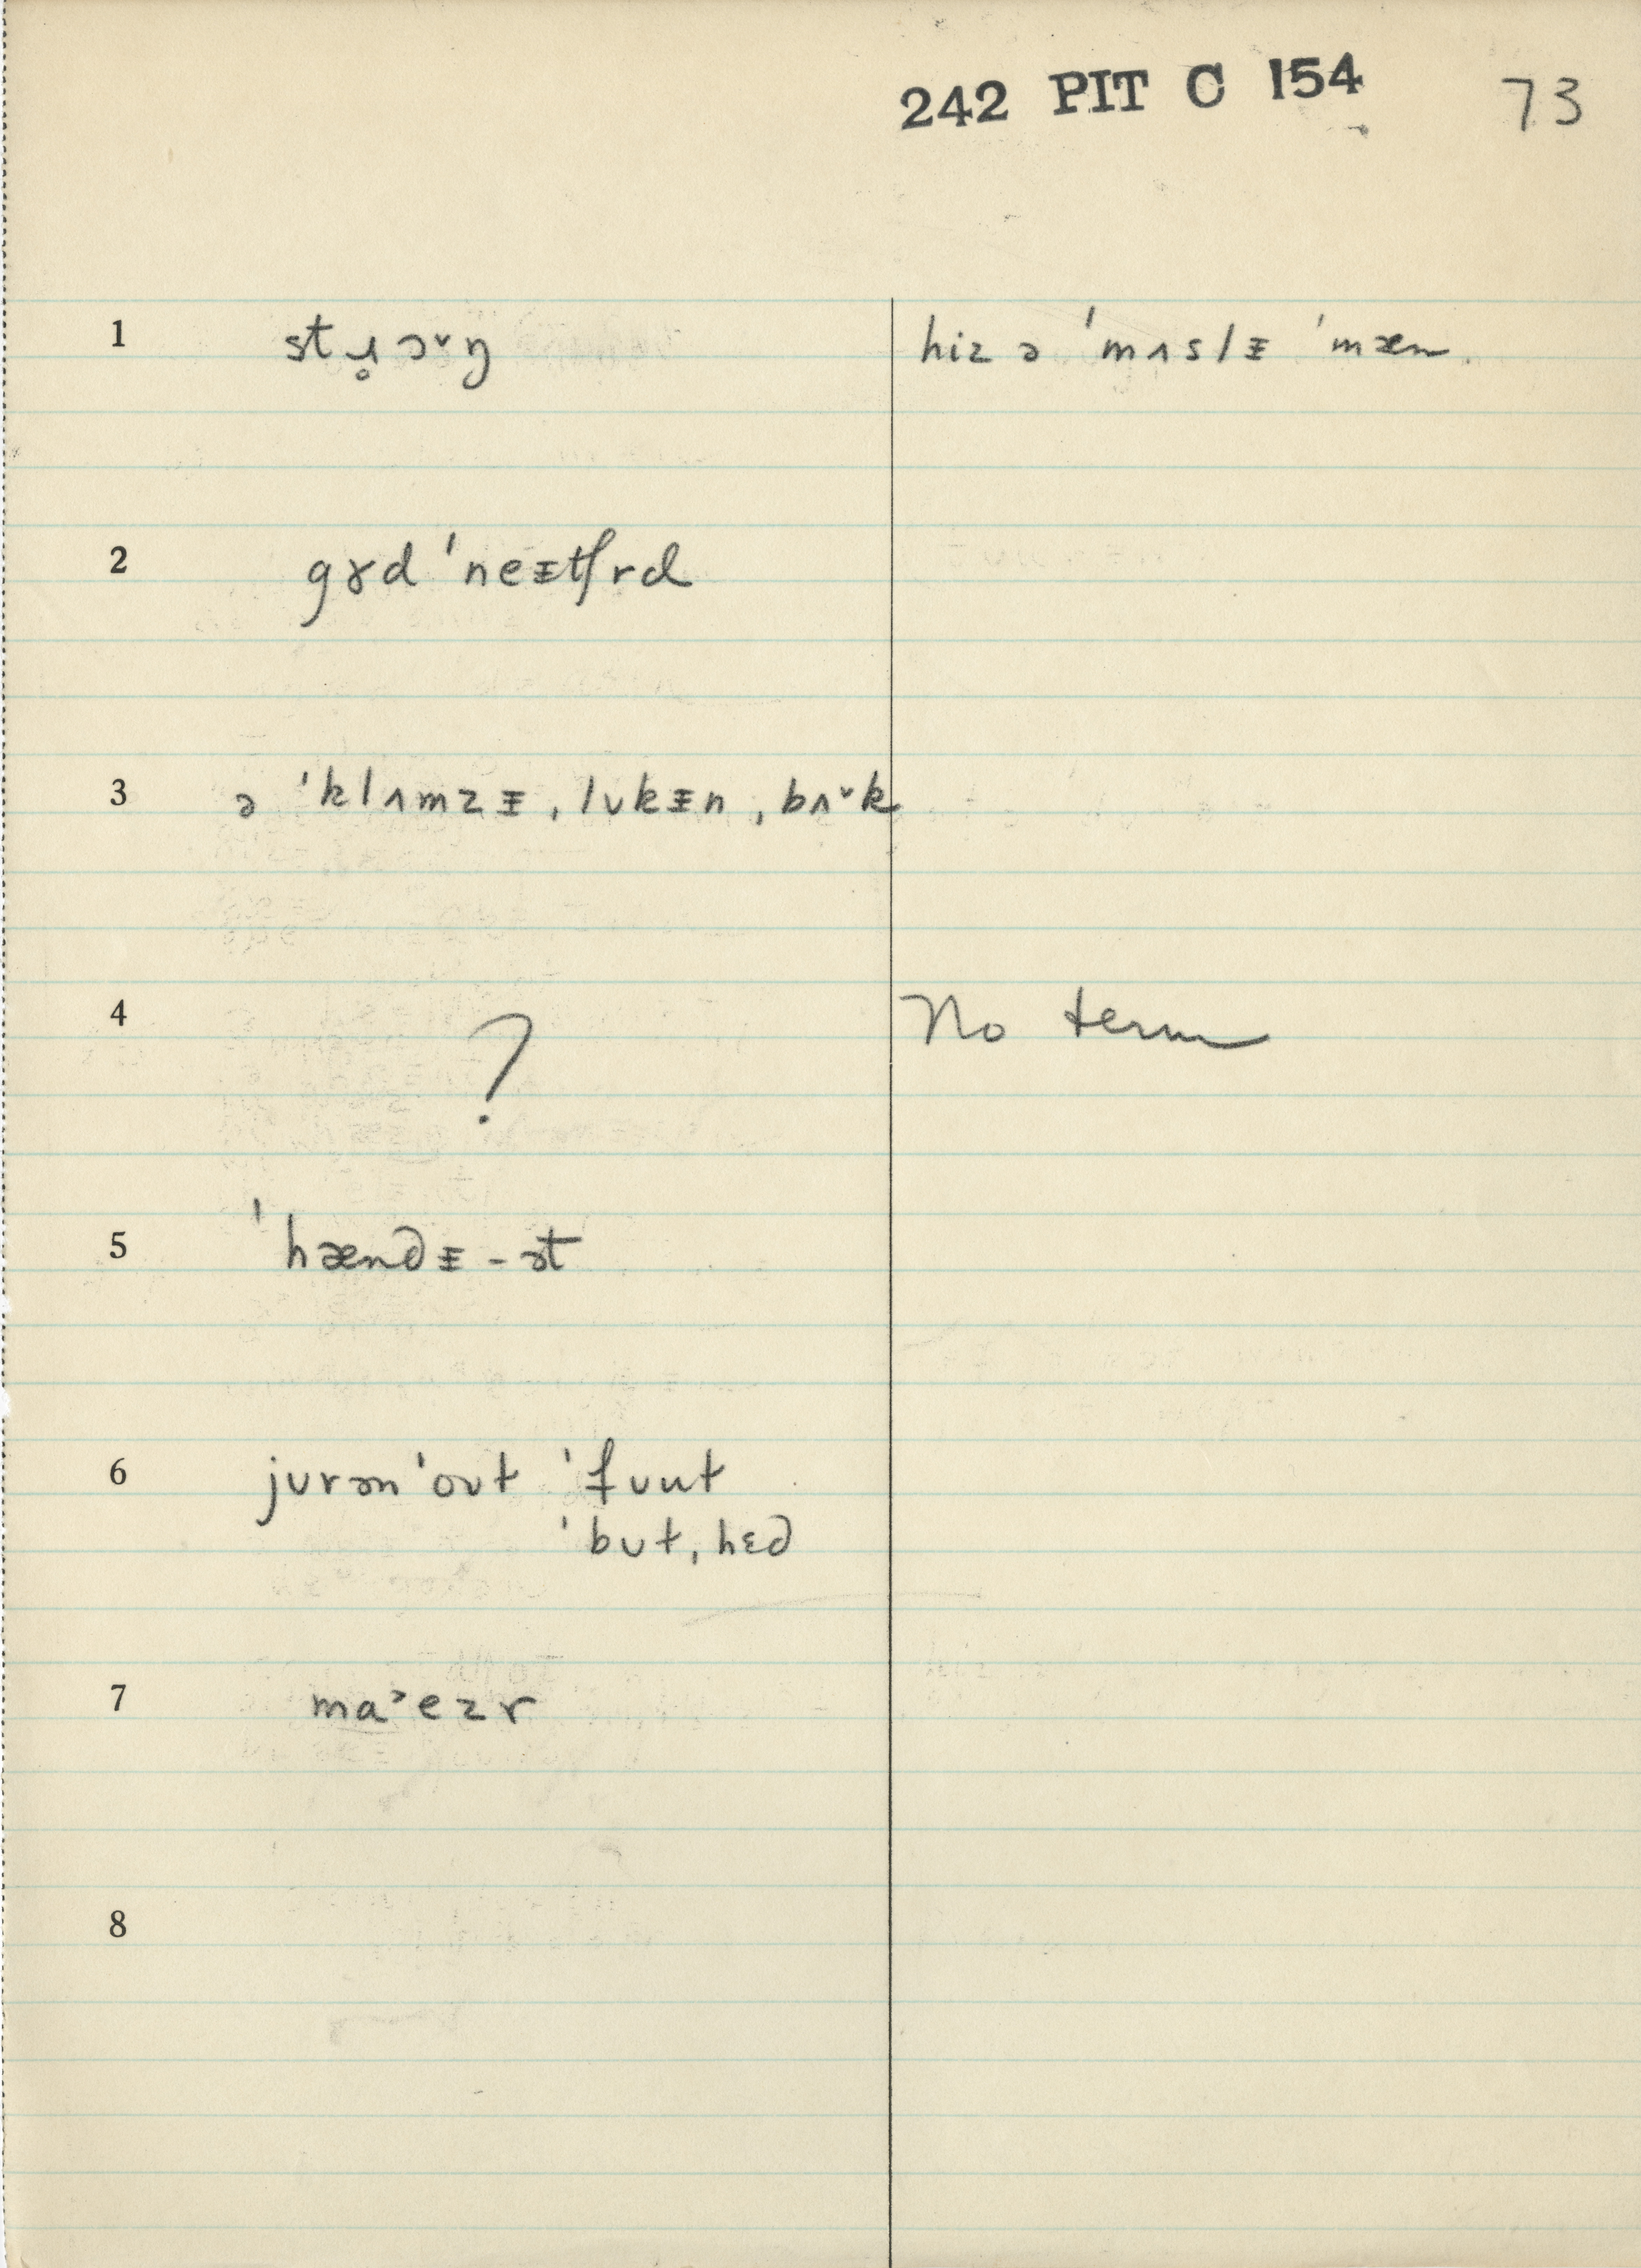 242 PIT C 154 73
1 stɹ̥ɔᵛŋ hiz ə ˈmʌslᵻ ˈmæn.
2 gɤd ˈneᵻtʃrd
3 ə ˈklʌmzᵻ ˌlʊkᵻn ˌbʌᵛk
4 ? No term
5 ˈhændᵻ - ət
6 jʊrənˈoʊt ˈfʊut
ˈbʊt ˌhɛd
7 maᵓezr
8